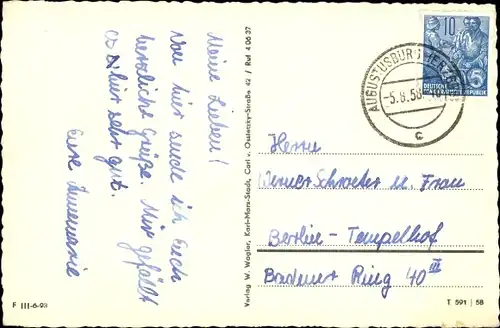 Meine Lieben!
Von hier sende ich Euch
herzliche Grüße. Mir gefällt
es hier sehr gut.
Eure Annemarie
Verlag W. Wagler, Karl-Marx-Stadt, Carl v. Ossietzky-Straße 42 / Ruf 4 06 37
10
DEUTSCHE
DEMOKRATISCHE REPUBLIK
AUGUSTUSBURG
-5.8.58
c
Herrn
Werner Schroeter u. Frau
Berlin-Tempelhof
Badener Ring 40 III
F III-6-93
T 591 | 58